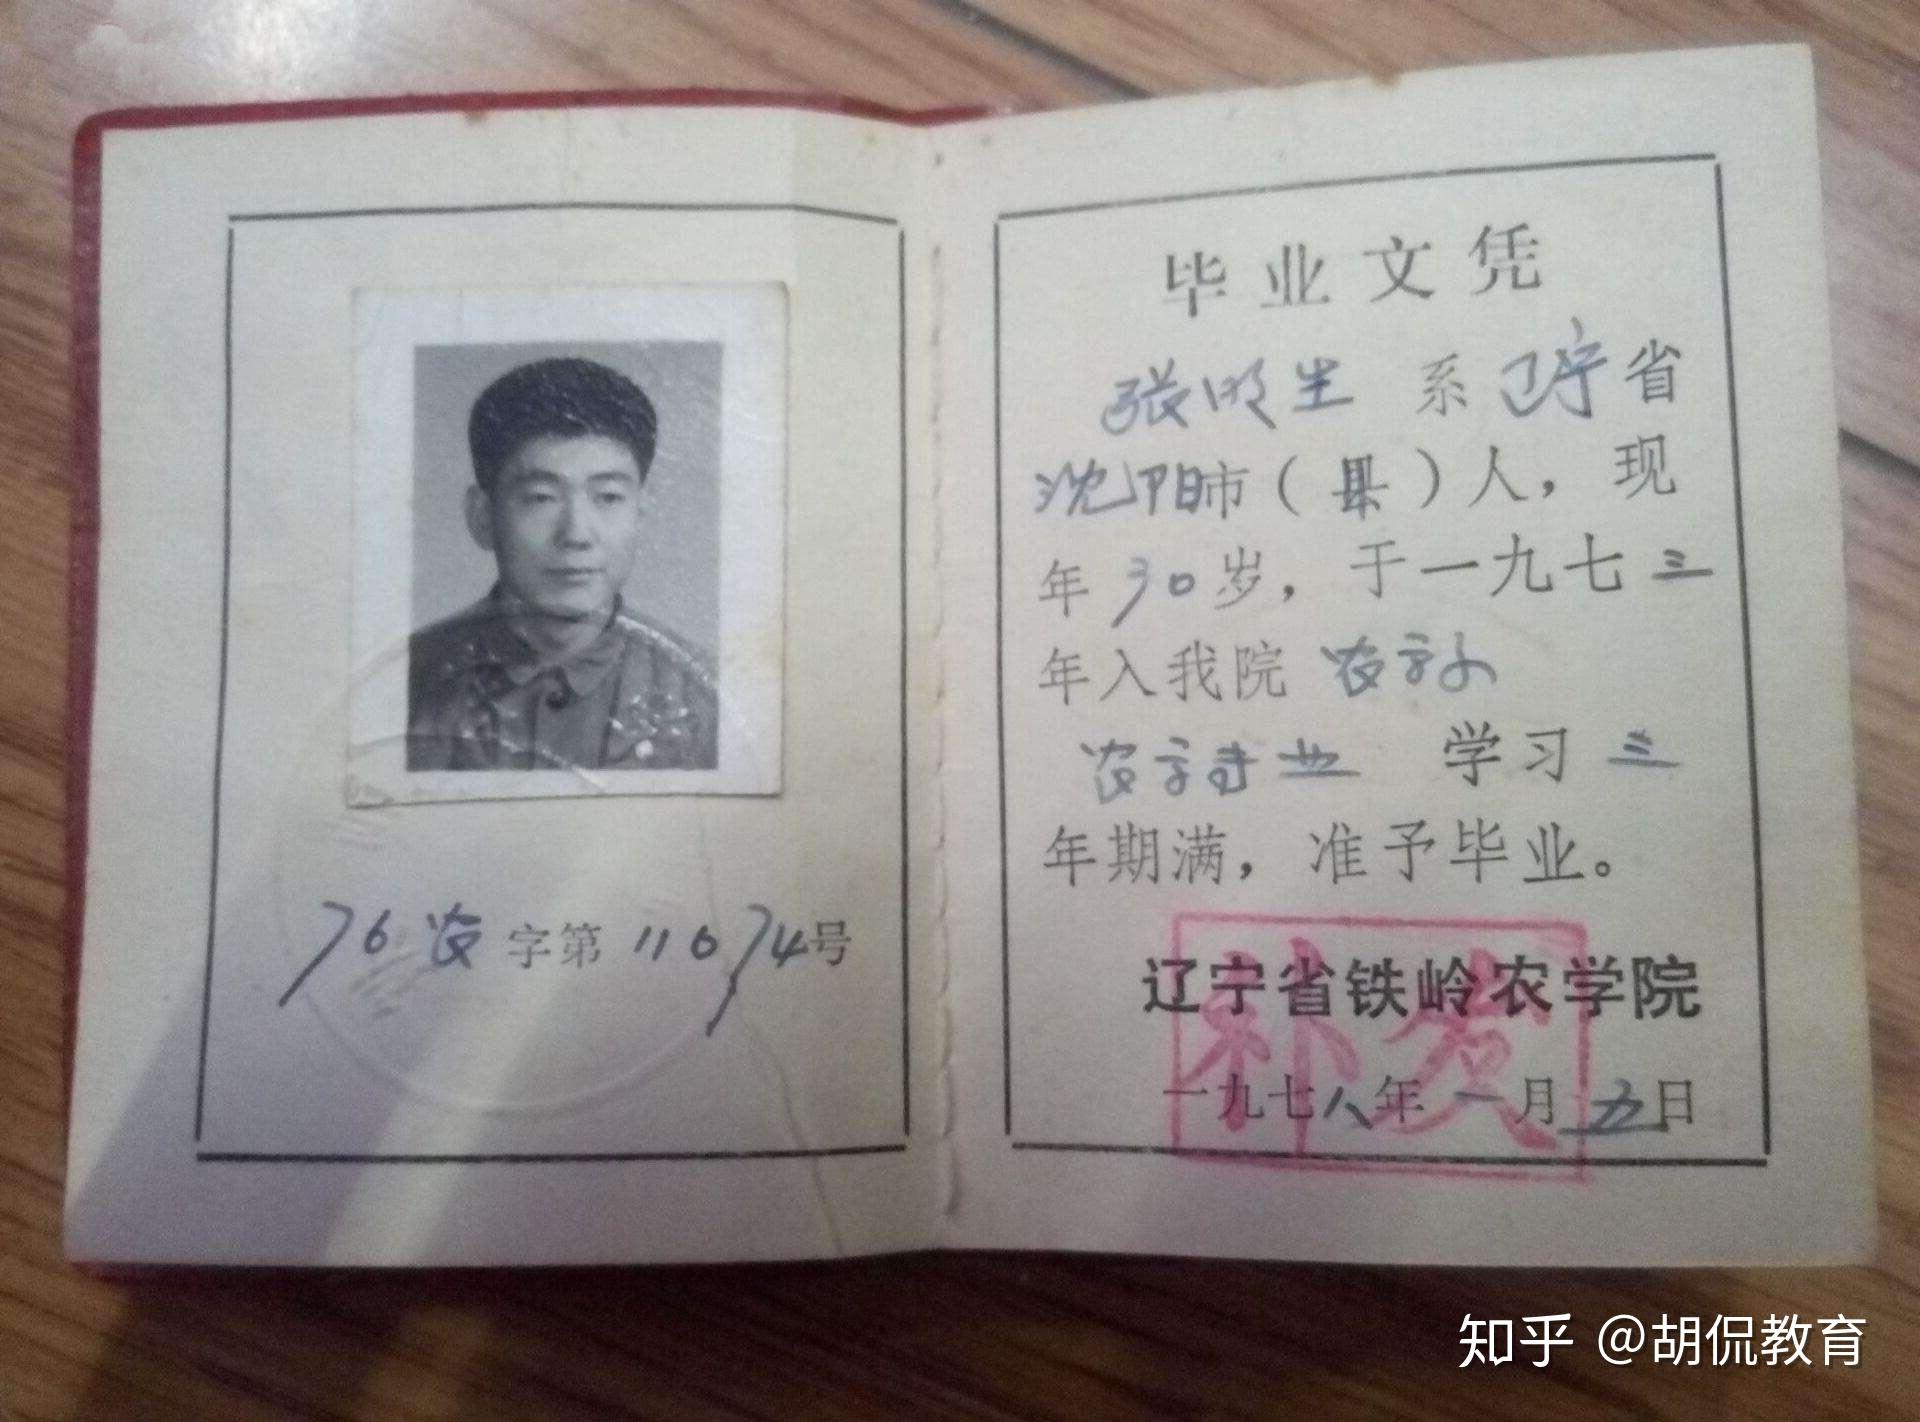 76农字第11674号
毕业文凭
张明生 系 辽宁省
沈阳市（县）人，现
年30岁，于一九七三
年入我院 农学系
农学专业 学习三
年期满，准予毕业。
辽宁省铁岭农学院
补发
一九七八年一月九日
知乎 @胡侃教育